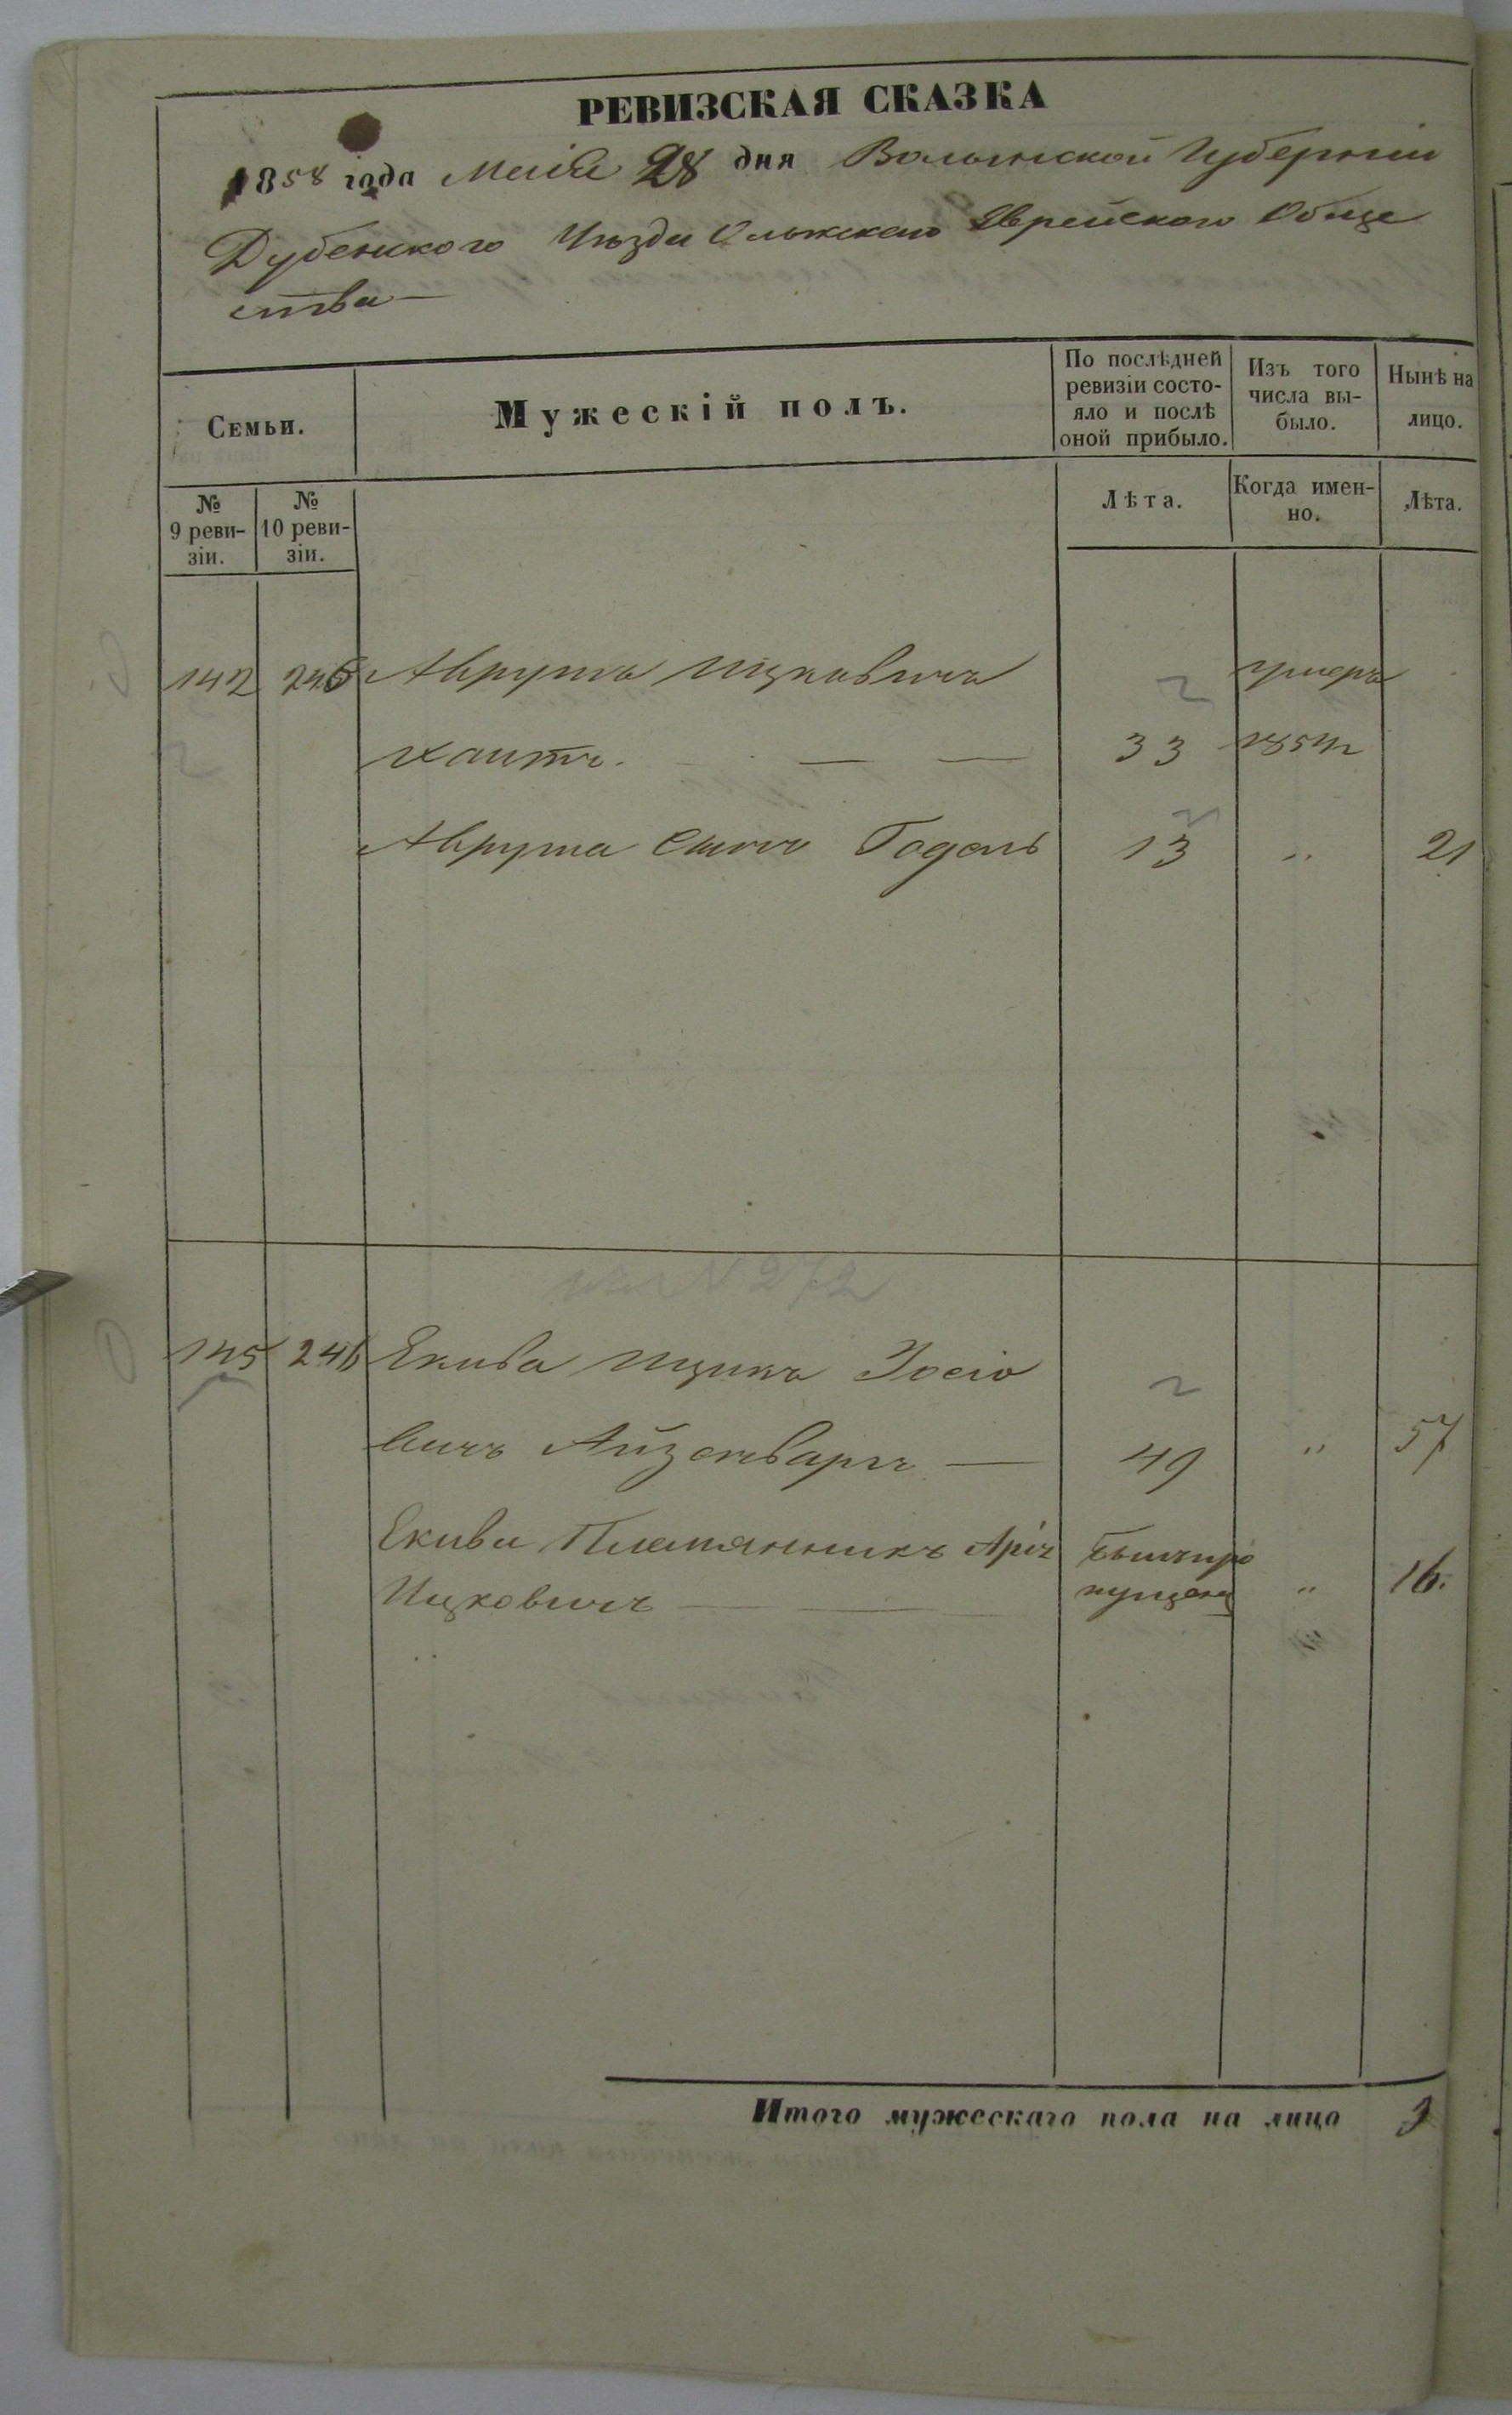 РЕВИЗСКАЯ СКАЗКА
1858 года Маія 28 дня Волынской Губерніи
Дубенского Уѣзда Олыкского Еврейского Обще
ства
Семьи.
Мужескій полъ.
По послѣдней ревизіи состо-
яло и послѣ
оной прибыло.
Изъ того
числа вы-
было.
Нынѣ на
лицо.
№
9 реви-
зіи.
№
10 реви-
зіи.
Лѣта.
Когда имен-
но.
Лѣта.
142 245 Аврумъ Ицковичъ умеръ
33 1854
Аврума Сынъ Годель 13 " 21
№ 272
145 246 Екива Ицикъ Іосіо
вичъ Айзенбаргъ 49 " 57
Екивы Племянникъ Аріе Былъ про
Ицковичъ пущенъ " 16.
Итого мужескаго пола на лицо 3